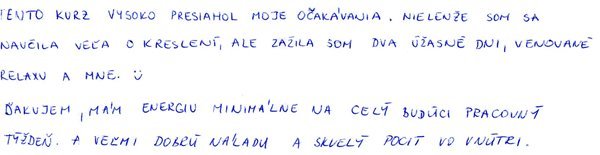 TENTO KURZ VYSOKO PRESIAHOL MOJE OČAKÁVANIA. NIELENŽE SOM SA
NAUČILA VEĽA O KRESLENÍ, ALE ZAŽILA SOM DVA ÚŽASNÉ DNI, VENOVANÉ
RELAXU A MNE. ☺
ĎAKUJEM, MÁM ENERGIU MINIMÁLNE NA CELÝ BUDÚCI PRACOVNÝ
TÝŽDEŇ. A VEĽMI DOBRÚ NÁLADU A SKVELÝ POCIT VO VNÚTRI.